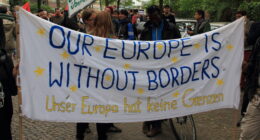 OUR EUROPE IS
WITHOUT BORDERS
Unser Europa hat keine Grenzen